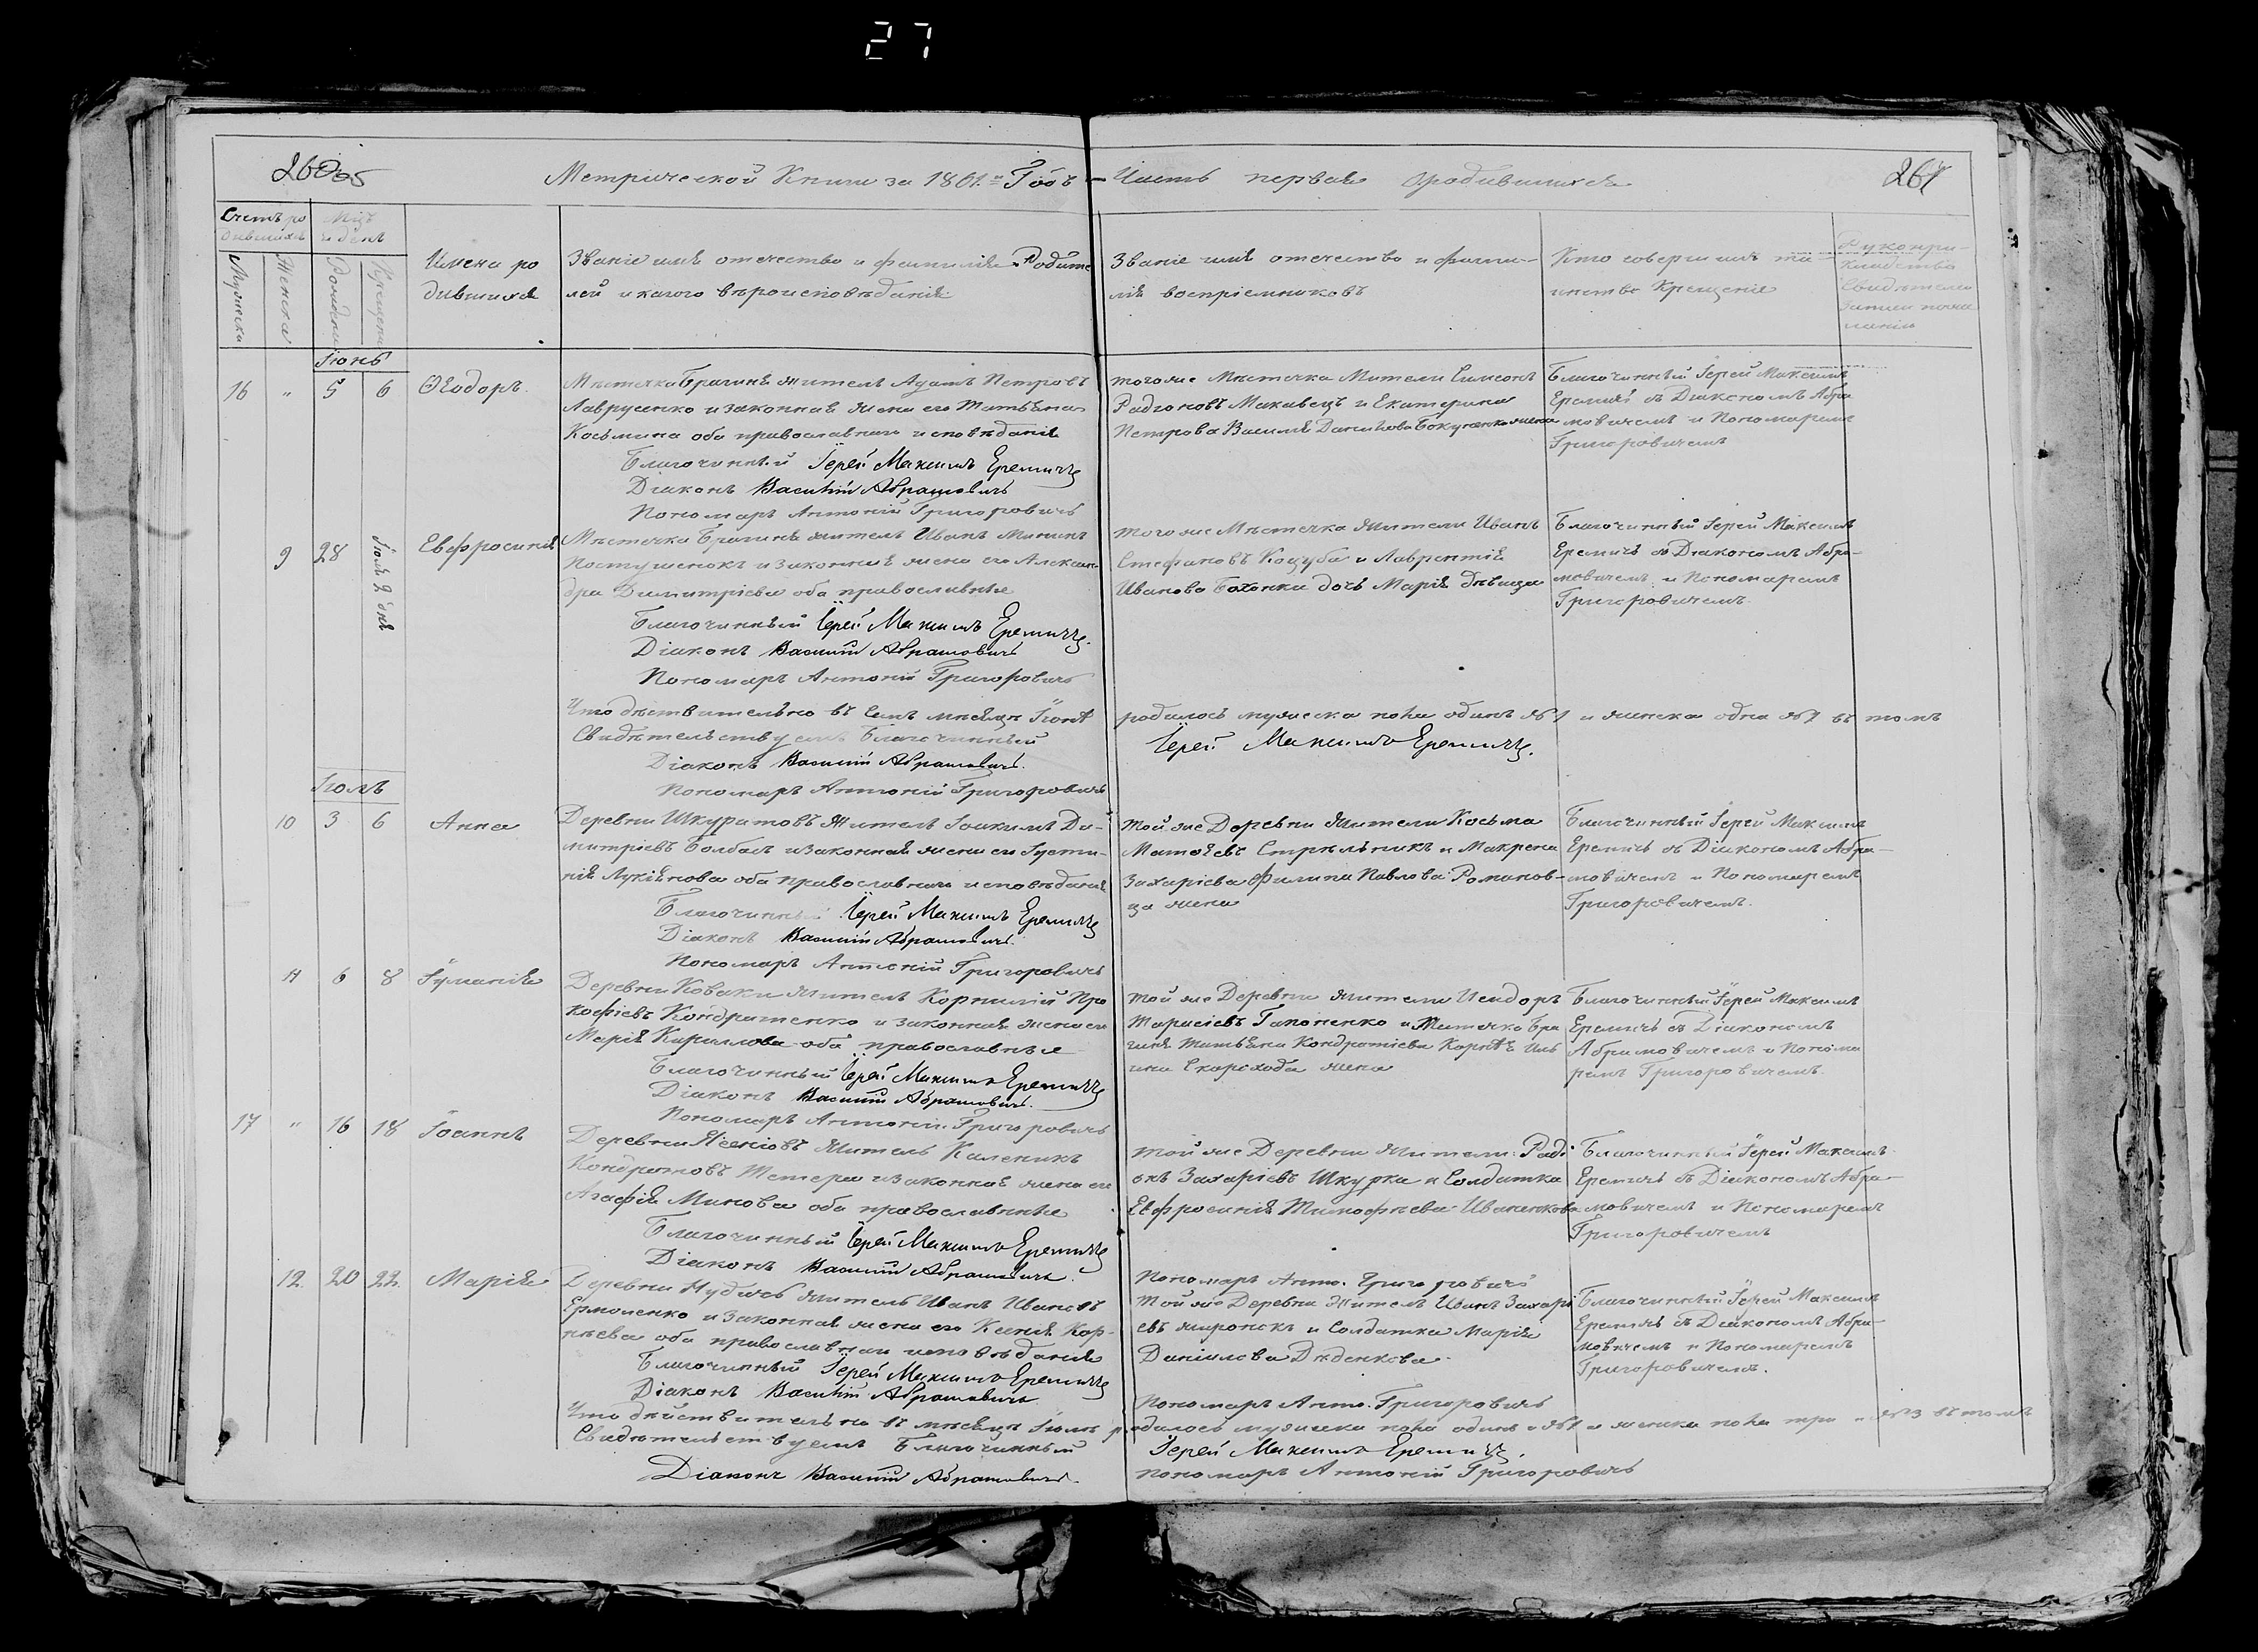 27
260об
Метрической Книги за 1861.й Годъ – Часть первая о родившихся
261
Счетъ ро
дившихся
Мужеска
Женска
Мцъ
и день
Рожденія
Крещенія
Имена ро
дившихся
Званіе имя отечество и фамилія Родите
лей и какого вѣроисповѣданія
Званіе имя отечество и фами-
лія воспріемниковъ
Кто совершилъ та-
инство Крещенія
Рукопри-
кладство
Свидѣтелей
записи по жела
нію
Іюнь
16 " 5 6 Ѳеодоръ.
Мѣстечка Брагиня житель Адамъ Петровъ
Лаврусенко и законная жена его Татьяна
Косьмина оба православнаго исповѣданія
Благочинный Іерей Максимъ Еремичъ
Діаконъ Василій Абрамовичъ
Пономарь Антоній Григоровичъ
того же Мѣстечка Жители Симеонъ
Радіоновъ Маковецъ и Екатерина
Петрова Василія Данилова жена
Благочинный Іерей Максимъ
Еремичъ съ Діакономъ Абра
мовичемъ и Пономаремъ
Григоровичемъ
9 28 Іюля 2 дня Евфросинія
Мѣстечка Брагиня житель Иванъ Мининъ
Постушенокъ и законная жена его Алексан-
дра Димитріева оба православные
Благочинный Іерей Максимъ Еремичъ.
Діаконъ Василій Абрамовичъ
Пономарь Антоній Григоровичъ
того же Мѣстечка Жители Иванъ
Стефановъ Коцуба и Лаврентія
Иванова дочь Марія дѣвица
Благочинный Іерей Максимъ
Еремичъ съ Діакономъ Абра-
мовичемъ и Пономаремъ
Григоровичемъ.
Что дѣствительно въ семъ мѣсяцѣ Іюнѣ родилось мужеска пола одинъ №1 и женска одна №1 въ томъ
Свидѣтельствуемъ Благочинный Іерей Максимъ Еремичъ.
Діаконъ Василій Абрамовичъ.
Пономарь Антоній Григоровичъ
Іюль
10 3 6 Анна
Деревни Шкуратовъ Житель Іоакимъ Ди-
митріевъ Болбасъ и законная жена его Іусти-
нія Лукіянова оба православнаго исповѣданія
Благочинный Іерей Максимъ Еремичъ
Діаконъ Василій Абрамовичъ.
Пономарь Антоній Григоровичъ
той же Деревни Жители Косьма
Матѳеевъ Стрѣльникъ и Макрена
Захаріева Филипа Павлова Романов-
ца жена
Благочинный Іерей Максимъ
Еремичъ съ Діакономъ Абра-
мовичемъ и Пономаремъ
Григоровичемъ.
11 6 8 Іуліанія
Деревни Ковака житель Корнилій Про
кофіевъ Кондратенко и законная жена его
Марія Кириллова оба православные
Благочинный Іерей Максимъ Еремичъ
Діаконъ Василій Абрамовичъ.
Пономарь Антоній Григоровичъ
той же Деревни жители Исидоръ
Тарасіевъ Гапоненко и Мѣстечка Бра
гиня Татьяна Кондратіева Корнѣя Иль
ина Скорохода жена
Благочинный Іерей Максимъ
Еремичъ съ Діакономъ
Абрамовичемъ и Понома
ремъ Григоровичемъ.
17 " 16 18 Іоаннъ
Деревни Ясеніовъ Житель Каленикъ
Кондратовъ Тетера и законная жена его
Агафія Минова оба православные
Благочинный Іерей Максимъ Еремичъ
Діаконъ Василій Абрамовичъ.
Пономарь Анто. Григоровичъ
той же Деревни Жители Радi
онъ Захаріевъ Шкурка и Солдатка
Евфросинія Тимофѣева Иваненкова
Благочинный Іерей Максимъ
Еремичъ съ Діакономъ Абра-
мовичемъ и Пономаремъ
Григоровичемъ
12. 20 22. Марія
Деревни Нудичь житель Иванъ Ивановъ
Ермоленко и законная жена его Ксенія Кор-
нѣева оба православнаго исповѣданія
Благочинный Іерей Максимъ Еремичъ
Діаконъ Василій Абрамовичъ
Пономарь Анто. Григоровичъ
Той же Деревни Житель Иванъ Захарі
евъ и Солдатка Марія
Даніилова Дѣденкова.
Благочинный Іерей Максимъ
Еремичъ съ Діакономъ Абра-
мовичемъ и Пономаремъ
Григоровичемъ.
Что дѣйствительно въ мѣсяцѣ Іюлѣ родилось мужеска пола одинъ №1 и женска пола три №3 въ томъ
Свидѣтельствуемъ Благочинный Іерей Максимъ Еремичъ.
Діаконъ Василій Абрамовичъ.
Пономарь Антоній Григоровичъ